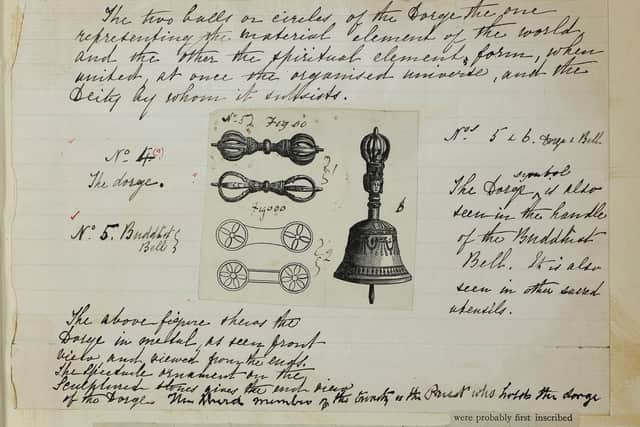 The two balls or circles, of the Dorge the one
representing the material element of the world
and the other the spiritual element, form, when
united, at once the organised universe, and the
Deity by whom it subsists.
No. 4 (9)
The dorge.
No. 5. Buddhist
Bell
No. 52
1
2
6
Nos. 5 & 6. Dorge & Bell.
The Dorge symbol is also
seen in the handle
of the Buddhist
Bell. It is also
seen in other sacred
utensils.
The above figure shews the
Dorge in metal, as seen front
view and viewed from the ends.
The Spectacle ornament on the
Sculptured stones gives the end view
of the Dorge. The third member of the trinity is the Priest who holds the dorge
were probably first inscribed